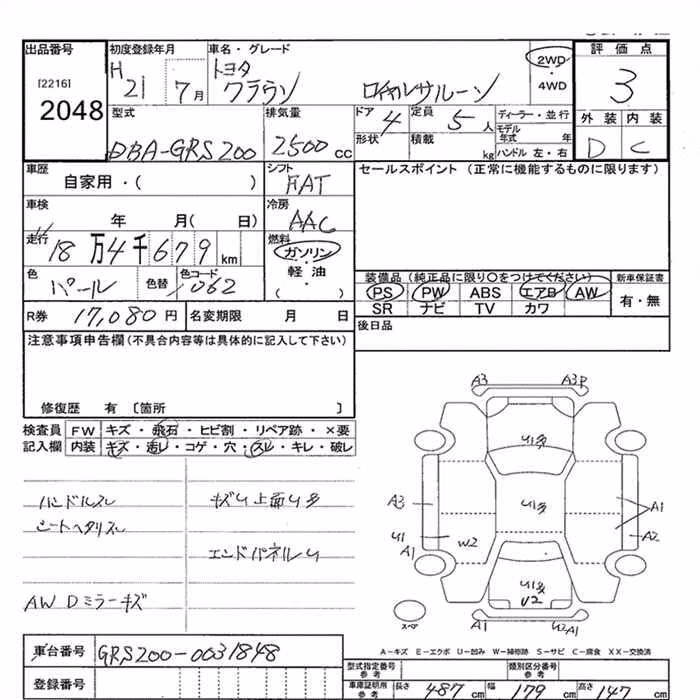 出品番号 初度登録年月 車名・グレード 2WD ・ 4WD 評価点
[2216] H 21 7月 トヨタ
2048 クラウン ロイヤルサルーン 3
型式 排気量 ドア 4 定員 5人 ディーラー・並行 外装 内装
DBA-GRS200 2500cc 形状 積載 kg モデル年式 年 D C
ハンドル 左・右
車歴 シフト セールスポイント (正常に機能するものに限ります)
自家用・( ) FAT
車検 冷房
年 月( 日) AAC
走行 18万4千679km 燃料
ガソリン
色 パール 色替 色コード 062 軽油 装備品 (純正品に限り〇をつけてください) 新車保証書
・( ) PS PW ABS エアB AW 有・無
R券 17,080円 名変期限 月 日 SR ナビ TV カワ
注意事項申告欄(不具合内容等は具体的に記入して下さい) 後日品
修復歴 有 [箇所 ]
検査員 FW キズ・飛石・ヒビ割・リペア跡・×要
記入欄 内装 キズ・汚レ・コゲ・穴・スレ・キレ・破レ
A3 A3P
U多
ハンドルスレ キズU上面U多 A3 U多 A1
シートヘタリスレ U1 W2 A2
A1
エンドパネルU
U多
AW Dミラーキズ U2
スペア A1 U2 A1
A-キズ E-エクボ U-凹み W-補修跡 S-サビ C-腐食 XX-交換済
車台番号 GRS200-0031848
型式指定番号 参考 類別区分番号 参考
登録番号 車庫証明用 参考 長さ 487cm 幅 179cm 高さ 147cm